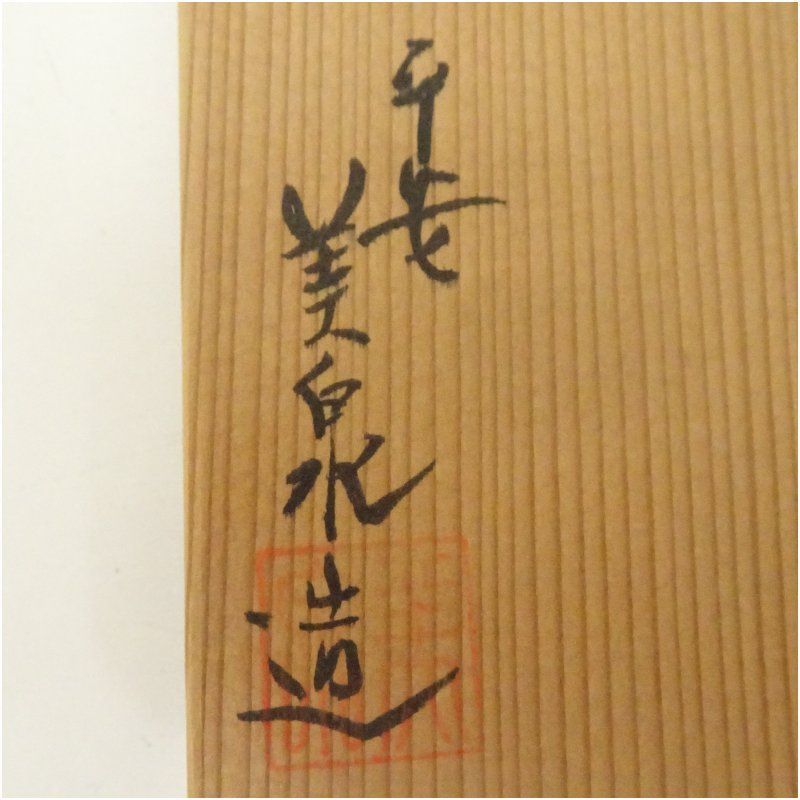 平安
美泉造